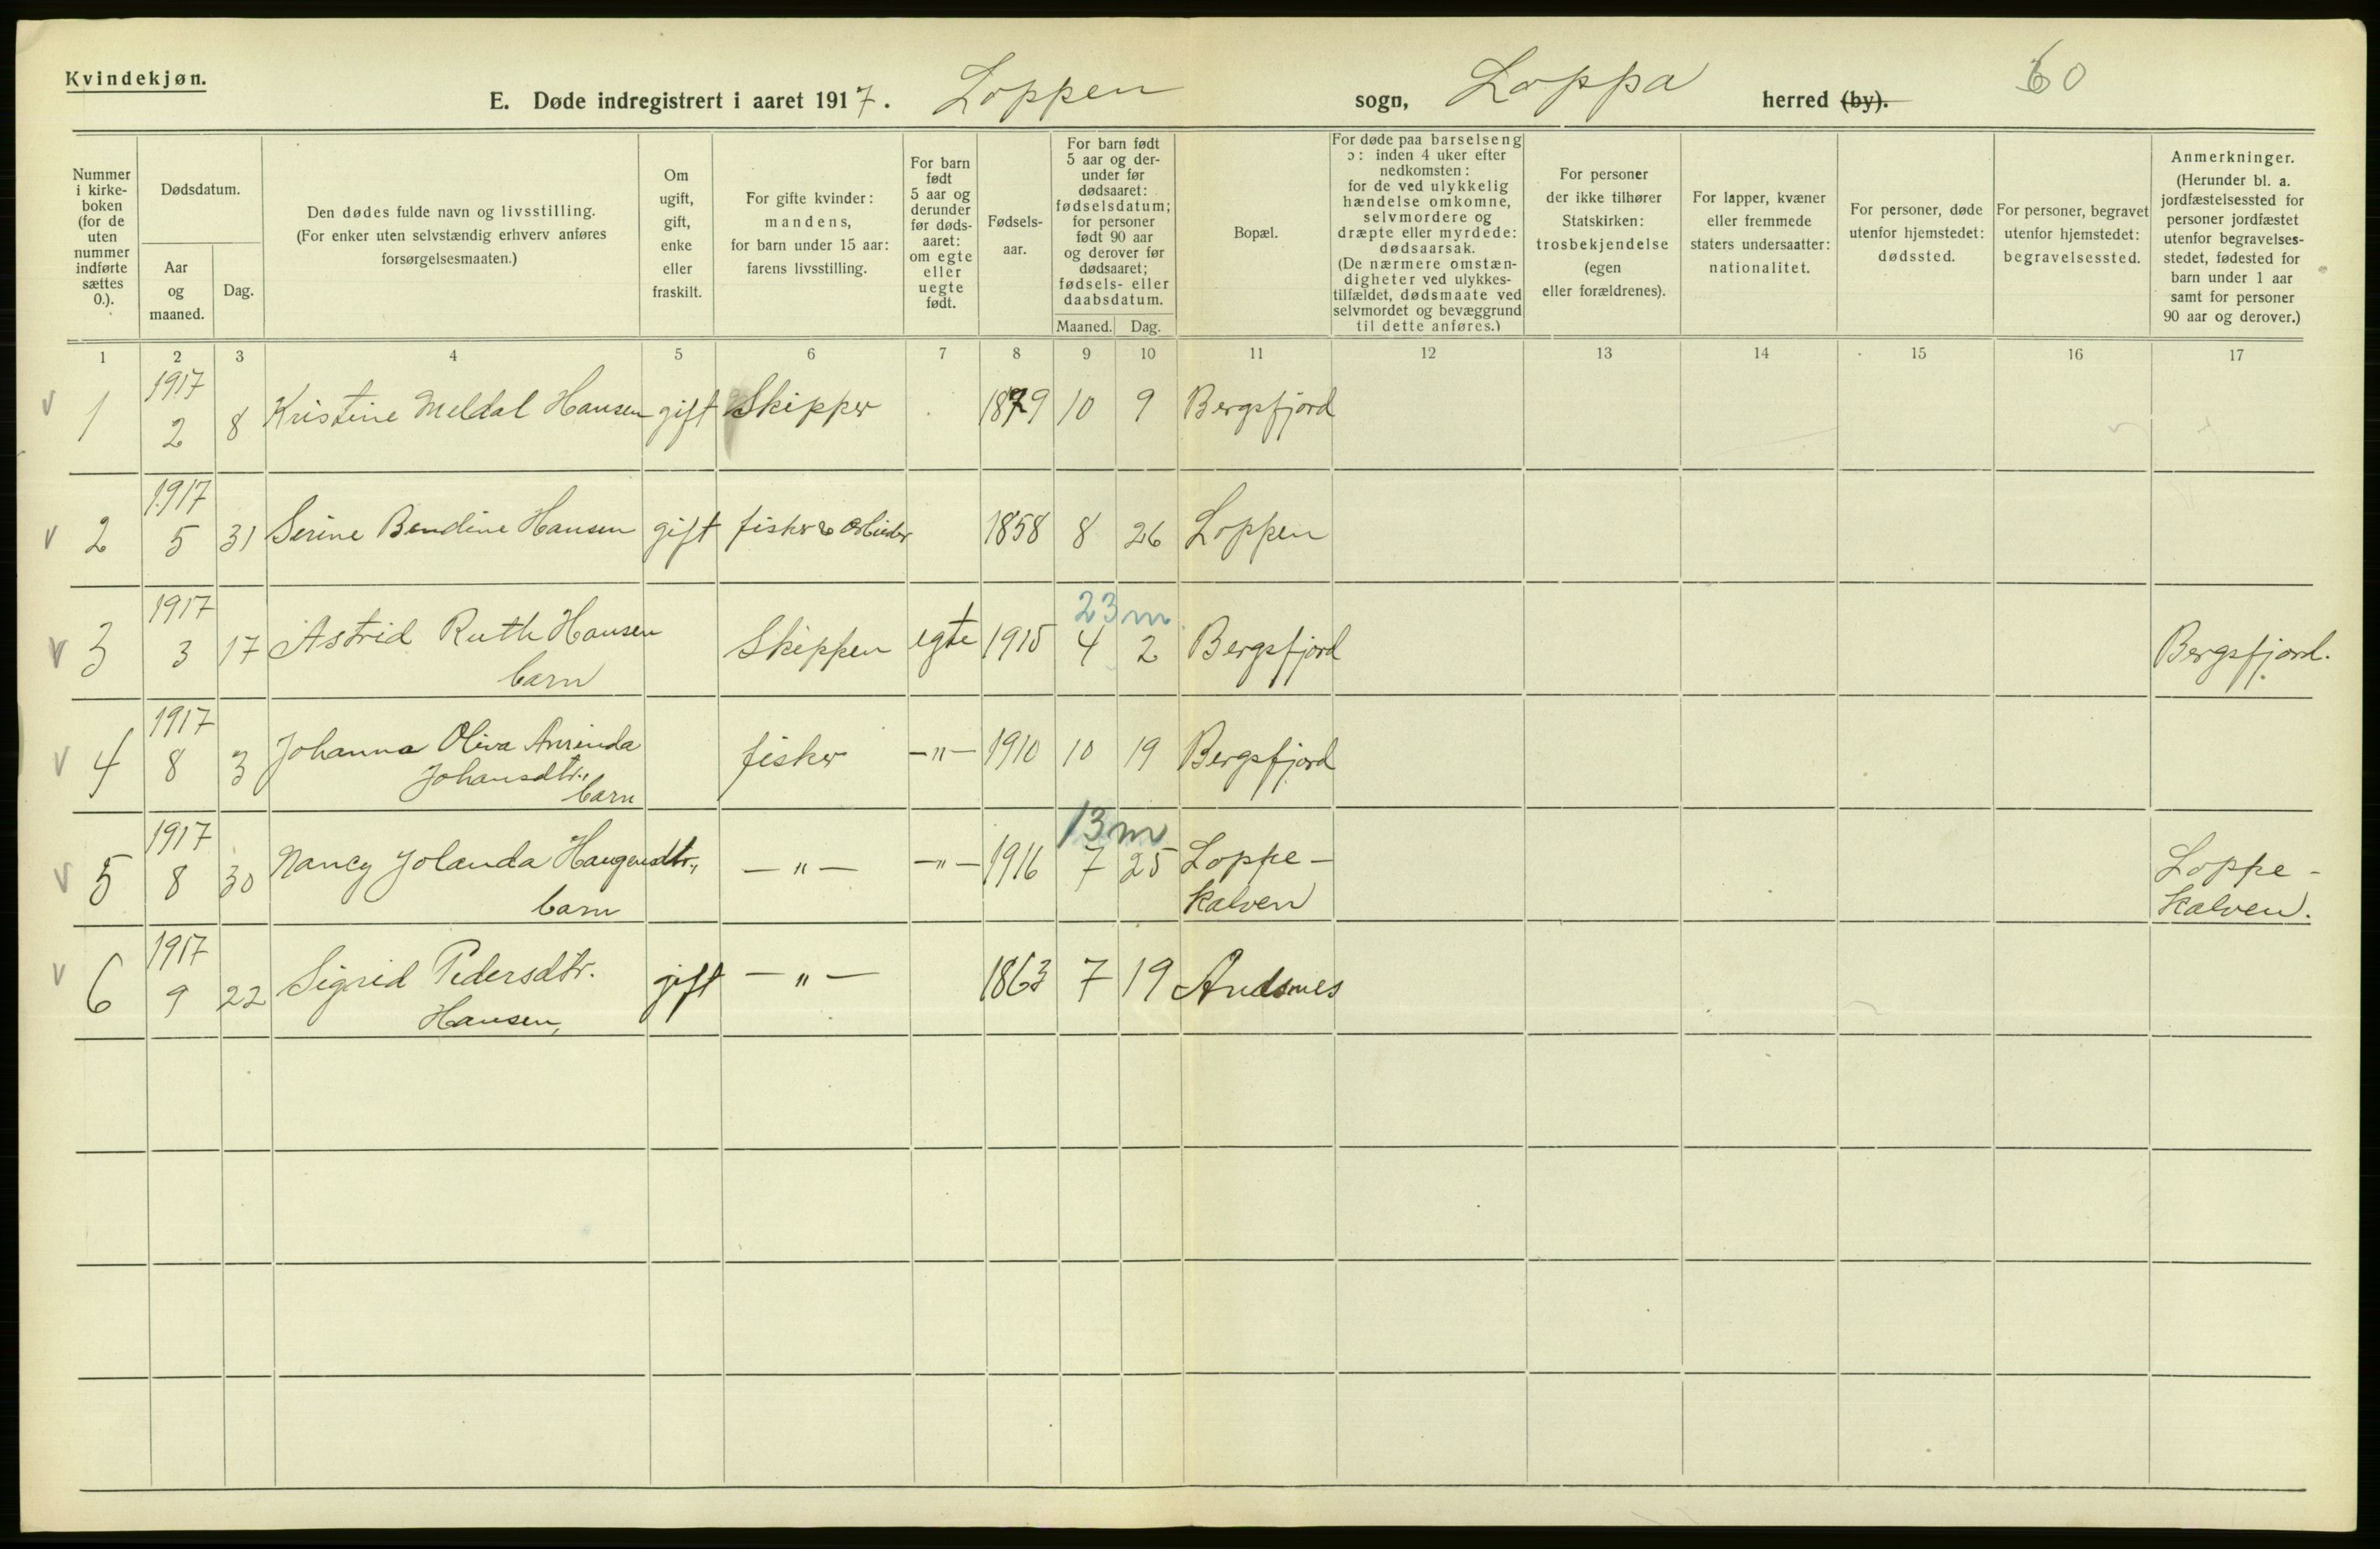 Kvindekjøn.
E. Døde indregistrert i aaret 1917. Loppen sogn, Loppa herred (by). 60
Nummer i kirke-boken (for de uten nummer indførte sættes 0.).
Dødsdatum.
Aar og maaned.
Dag.
Den dødes fulde navn og livsstilling.
(For enker uten selvstændig erhverv anføres
forsørgelsesmaaten.)
Om ugift, gift, enke eller fraskilt.
For gifte kvinder: mandens, for barn under 15 aar: farens livsstilling.
For barn født 5 aar og derunder før døds-aaret: om egte eller uegte født.
Fødsels-aar.
For barn født 5 aar og der-under før dødsaaret: fødselsdatum; for personer født 90 aar og derover før dødsaaret; fødsels- eller daabsdatum.
Maaned. Dag.
Bopæl.
For døde paa barselseng ɔ: inden 4 uker efter nedkomsten: for de ved ulykkelig hændelse omkomne, selvmordere og dræpte eller myrdede: dødsaarsak. (De nærmere omstæn-digheter ved ulykkes-tilfældet, dødsmaate ved selvmordet og bevæggrund til dette anføres.)
For personer der ikke tilhører Statskirken: trosbekjendelse (egen eller forældrenes).
For lapper, kvæner eller fremmede staters undersaatter: nationalitet.
For personer, døde utenfor hjemstedet: dødssted.
For personer, begravet utenfor hjemstedet: begravelsessted.
Anmerkninger. (Herunder bl. a. jordfæstelsessted for personer jordfæstet utenfor begravelses-stedet, fødested for barn under 1 aar samt for personer 90 aar og derover.)
1 2 3 4 5 6 7 8 9 10 11 12 13 14 15 16 17
v 1 1917 2 8 Kristine Meldal Hansen gift Skipper 1879 10 9 Bergsfjord
v 2 1917 5 31 Serine Bendine Hansen gift fisker & 1858 8 26 Loppen
23 m
v 3 1917 3 17 Astrid Ruth Hansen Skipper egte 1915 4 2 Bergsfjord Bergsfjord.
barn
v 4 1917 8 3 Johanna Oliva fisker –"– 1910 10 19 Bergsfjord
Johansdtr.,
barn
13 m
v 5 1917 8 30 Nancy Jolanda Haugensdtr., –"– –"– 1916 7 25 Loppe- Loppe-
barn kalven kalven.
v 6 1917 9 22 Sigrid Pedersdtr. gift –"– 1863 7 19 Andsnes
Hansen,